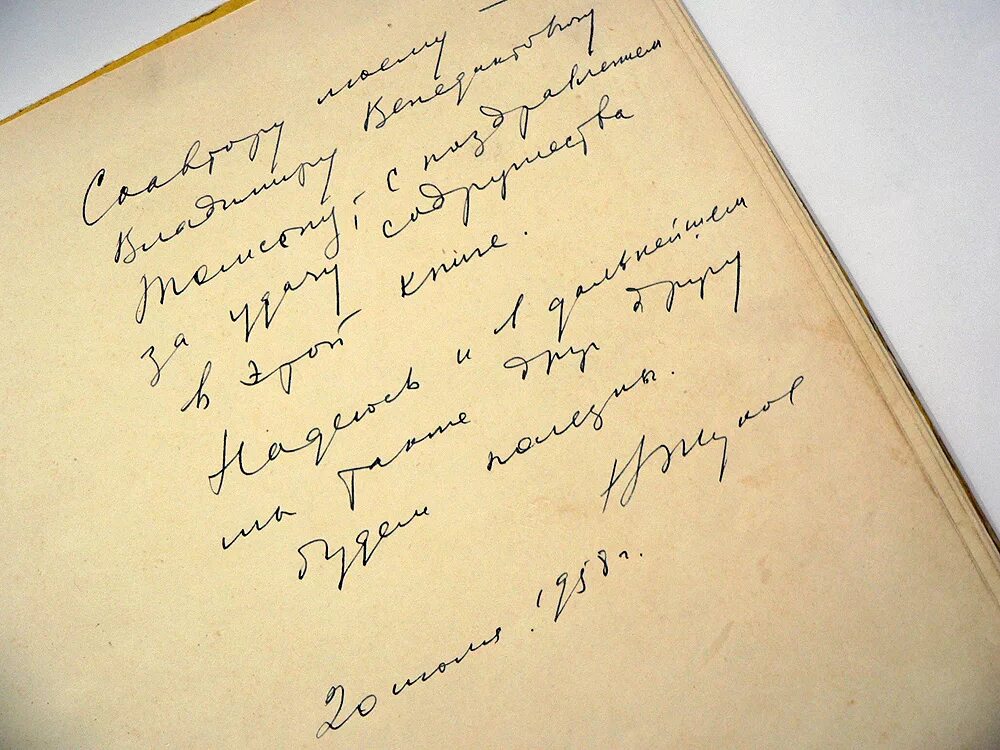 Соавтору моему
Владимиру Венедиктовичу
Толистову, с поздравлением
за удачу содружества
в этой книге.
Надеюсь и в дальнейшем
мы также друг другу
будем полезны.
Н Жуков
20 июля 1958 г.